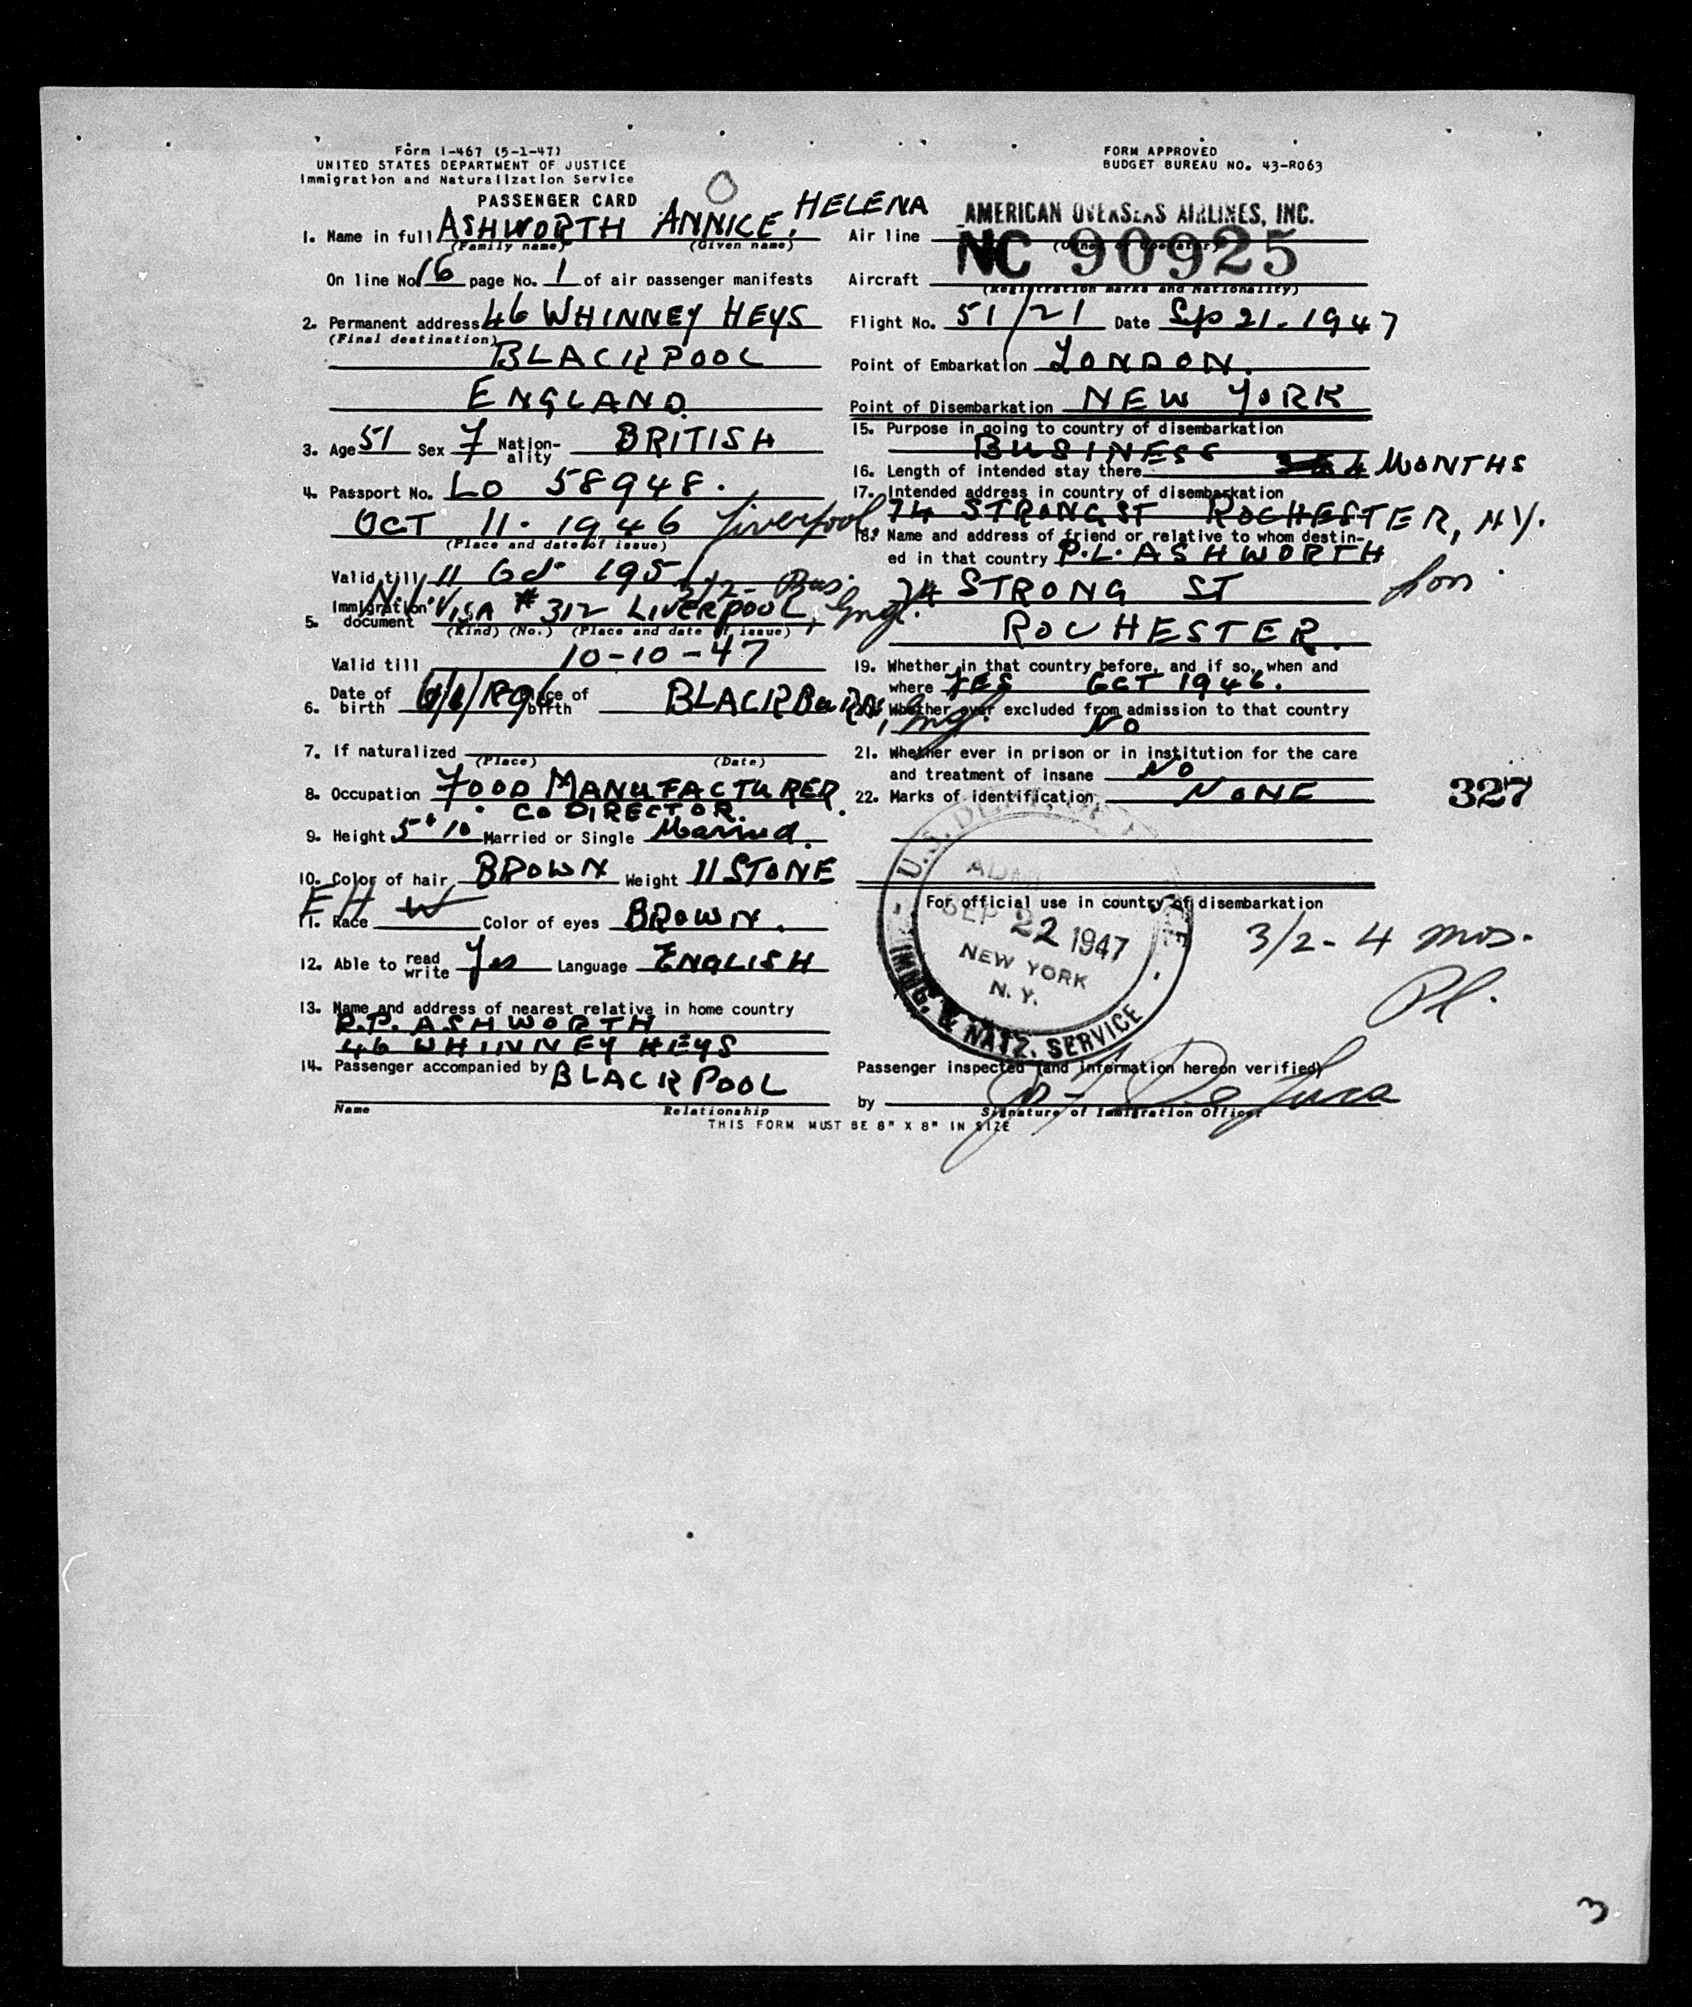 Form I-467 (5-1-47)
UNITED STATES DEPARTMENT OF JUSTICE
Immigration and Naturalization Service
PASSENGER CARD
FORM APPROVED
BUDGET BUREAU NO. 43-R063
1. Name in full ASHWORTH ANNICE. HELENA
(Family name) (Given name)
On line No. 16 page No. 1 of air passenger manifests
2. Permanent address 46 WHINNEY HEYS
(Final destination)
BLACKPOOL
ENGLAND.
3. Age 51 Sex F Nation-ality BRITISH
4. Passport No. LO 58948.
OCT 11. 1946 Liverpool
(Place and date of issue)
Valid till 11 Oct 1951 3/2- Bus.
5. Immigration document N.I. VISA # 312 LIVERPOOL, Engl.
(Kind) (No.) (Place and date of issue)
Valid till 10-10-47
6. Date of birth /1896 Place of birth BLACKBURN, Engl.
7. If naturalized
(Place) (Date)
8. Occupation FOOD MANUFACTURER.
CO DIRECTOR.
9. Height 5' 10 Married or Single Married.
10. Color of hair BROWN Weight 11 STONE
EH W
11. Race Color of eyes BROWN.
12. Able to read write Yes Language ENGLISH
13. Name and address of nearest relative in home country
R.P. ASHWORTH
46 WHINNEY HEYS
14. Passenger accompanied by BLACKPOOL
Name Relationship
THIS FORM MUST BE 8" X 8" IN SIZE
Air line AMERICAN OVERSEAS AIRLINES, INC.
(Owner or Operator)
Aircraft NC 90925
(Registration marks and Nationality)
Flight No. 51/21 Date Sep 21. 1947
Point of Embarkation LONDON.
Point of Disembarkation NEW YORK
15. Purpose in going to country of disembarkation
BUSINESS
16. Length of intended stay there 4 MONTHS
17. Intended address in country of disembarkation
74 STRONG ST ROCHESTER, N.Y.
18. Name and address of friend or relative to whom destin-
ed in that country P.L. ASHWORTH
74 STRONG ST son.
ROCHESTER.
19. Whether in that country before, and if so, when and
where YES OCT 1946.
Whether ever excluded from admission to that country
NO
21. Whether ever in prison or in institution for the care
and treatment of insane NO
22. Marks of identification NONE
327
For official use in country of disembarkation
U.S.
SEP 22 1947
NEW YORK
N.Y.
IMMG. & NATZ. SERVICE
3/2- 4 mos.
Pl.
Passenger inspected (and information hereon verified)
by De Luca
Signature of Immigration Officer
3